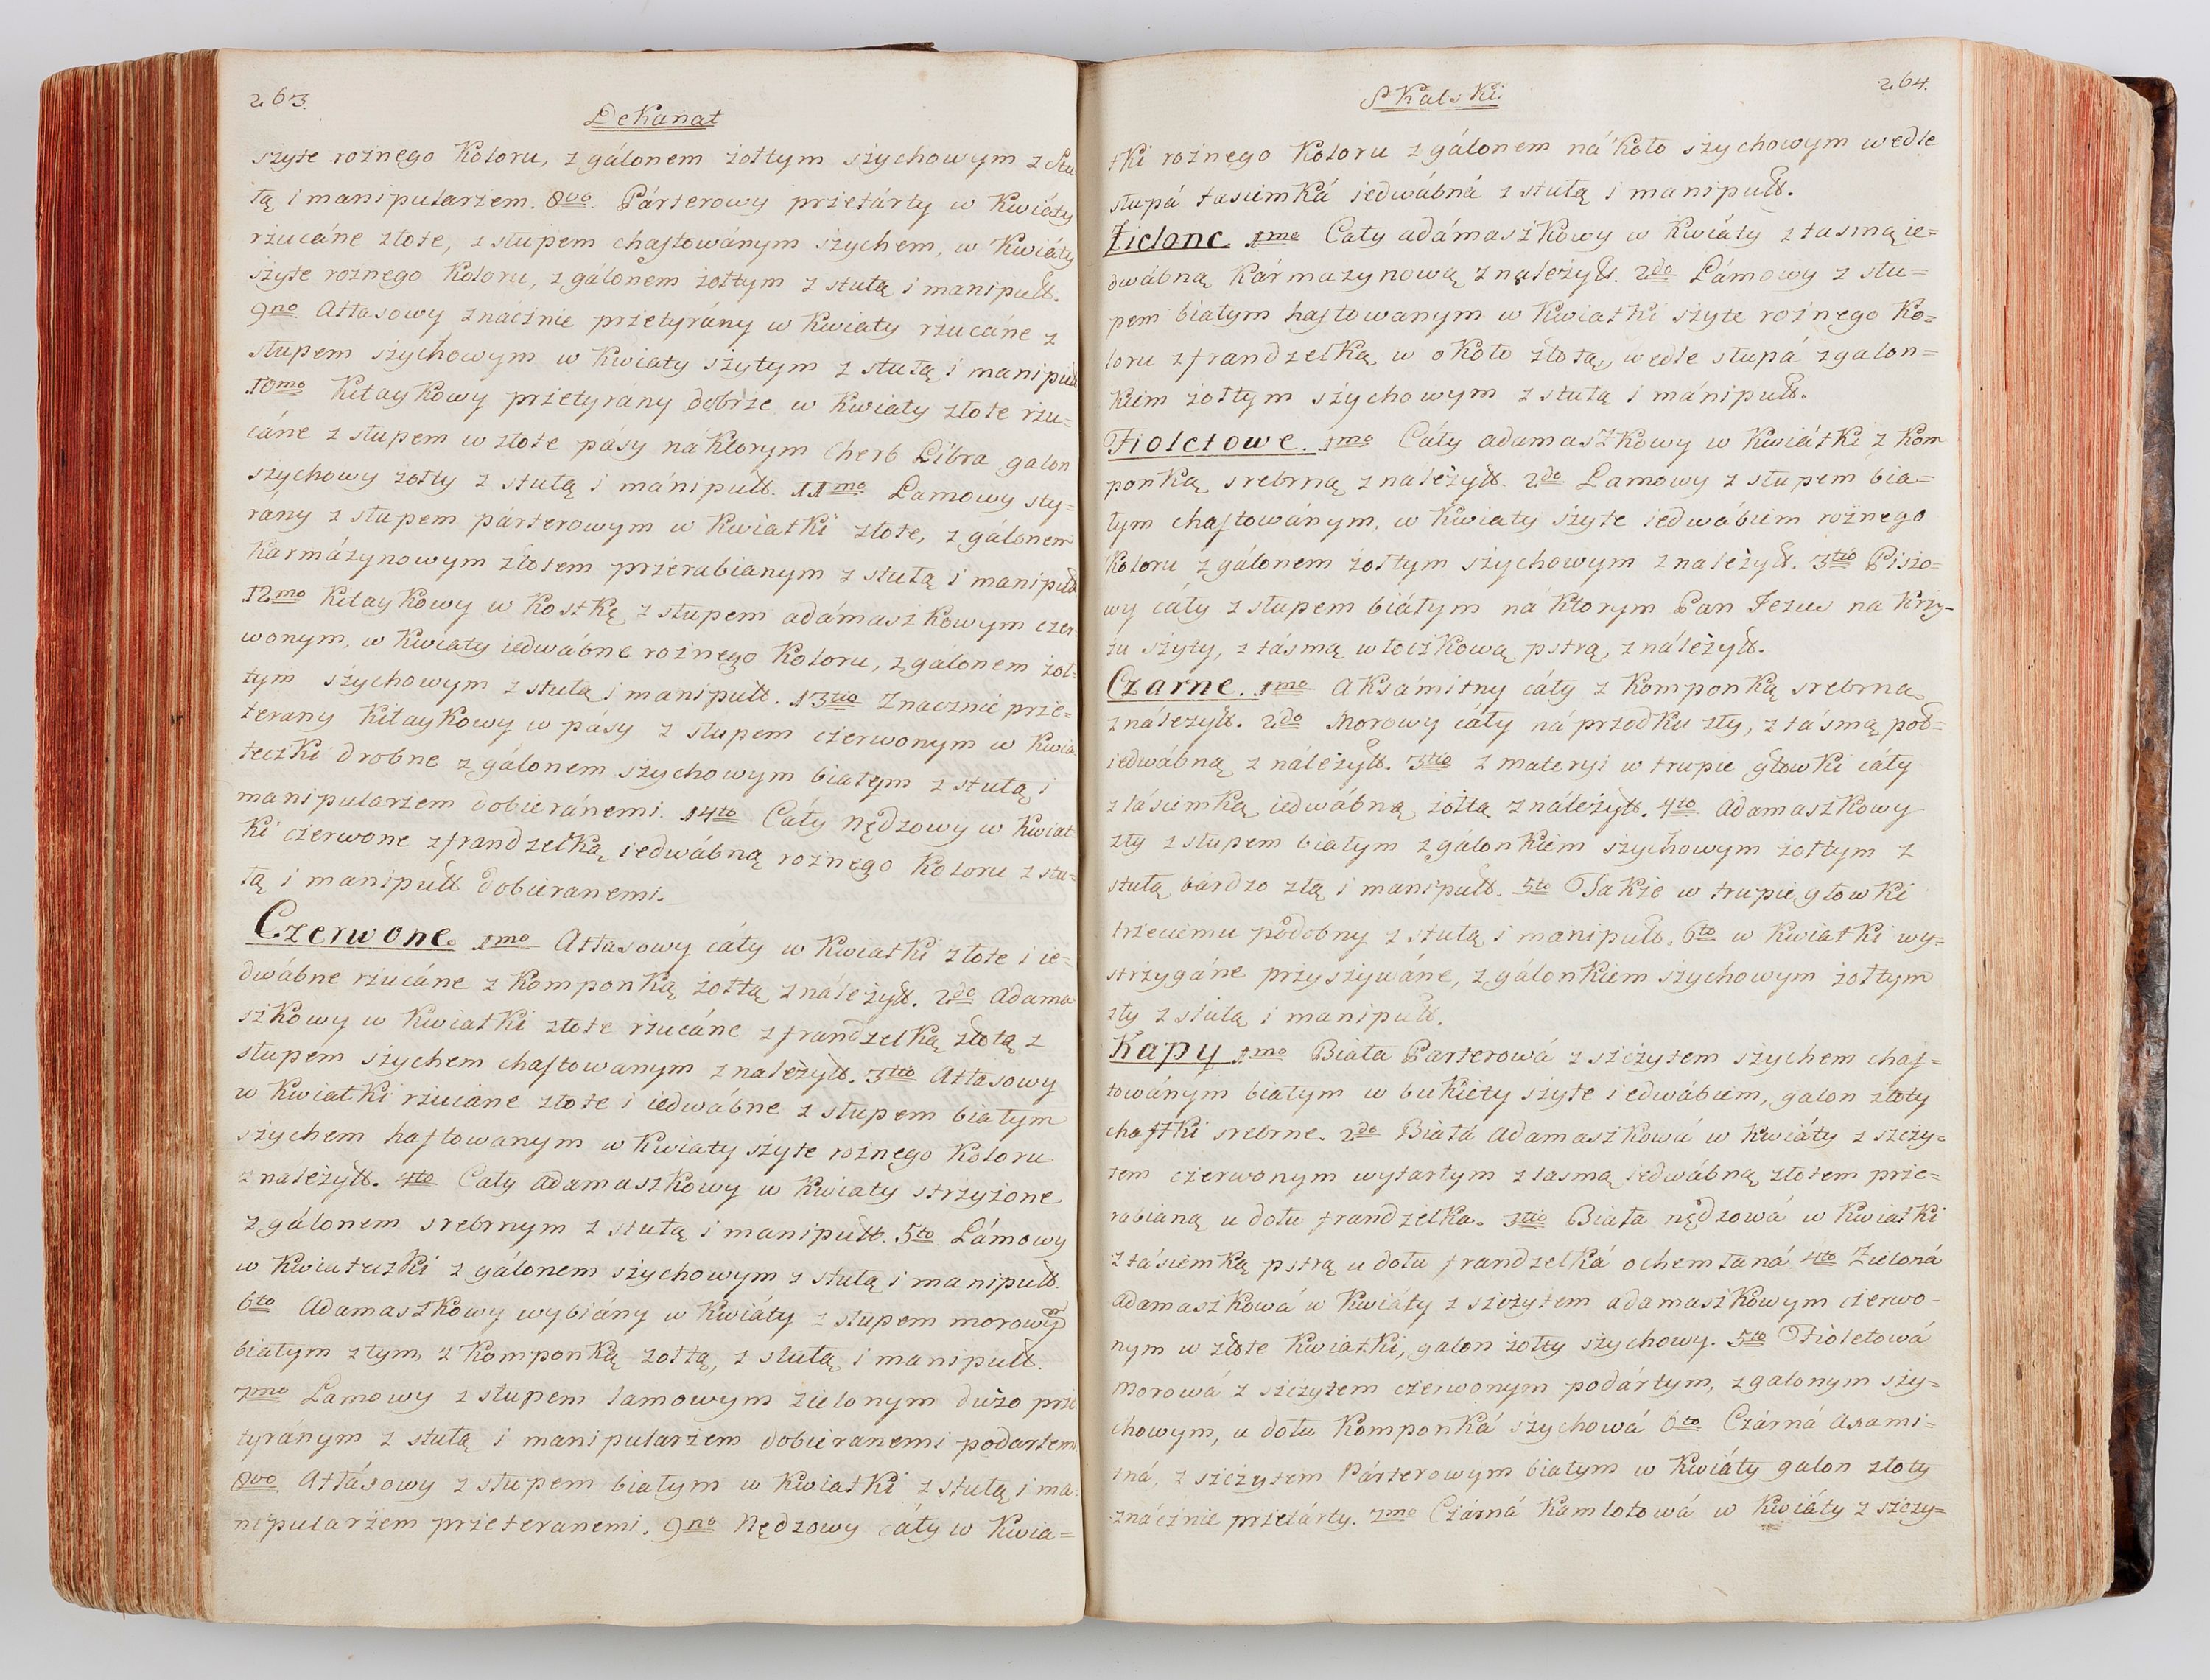 263.
Dekanat
szyte rożnęgo Koloru, z gálonem żołtym szychowym z Stu
łą i manipularzem. 8vo. Párterowy przetárty w Kwiáty
rzucáne złote, z słupem chaftowánym szychem, w Kwiáty
szyte rożnego Koloru, z gálonem żołtym z stułą i manipull.
9no Atłasowy znácznie przetyrány w Kwiaty rzucáne z
słupem szychowym w Kwiaty szytym z stułą i manipull
10mo Kitaykowy przetyrány dobrze w Kwiaty złote rzu=
cáne z słupem w złote pásy ná Ktorym Cherb Libra galon
szychowy żołty z stułą i mánipull. 11mo Lamowy sty=
rány z słupem párterowym w Kwiatki złote, z gálonem
Karmázynowym złotem przerabianym z stułą i manipull
12mo Kitaykowy w Kostkę z słupem adámaszkowym czer
wonym, w Kwiaty iedwábne rożnęgo Koloru, z gálonem żoł=
tym szychowym z stułą i manipull. 13tio Znacznie prze=
terany Kitaykowy w pásy z słupem czerwonym w Kwia
teczki drobne z gálonem szychowym białym z stułą i
manipularzem dobieránemi. 14to Cáły Nędzowy w Kwiat
ki czerwone z frandzelką iedwábną rożnego Koloru z stu=
łą i manipull dobieranemi.
Czerwone. 1mo Atłasowy cáły w Kwiatki złote i ie=
dwábne rzucáne z Komponką żołtą z náleżyll. 2do Adama
szkowy w Kwiatki złote rzucáne z frandzelką złotą z
słupem szychem chaftowanym z należyll. 3tio Atłasowy
w Kwiatki rzucane złote i iedwábne z słupem białym
szychem haftowanym w Kwiaty szyte rożnego Koloru
z należyll. 4to Cały Adamaszkowy w Kwiaty strzyżone
z gálonem srebrnym z stułą i manipull. 5to Lámowy
w Kwiateczki z gálonem szychowym z stułą i manipull.
6to Adamaszkowy wybiány w Kwiáty z słupem morowy
białym złym, z Komponką żołtą, z stułą i manipull.
7mo Lamowy z słupem lamowym zielonym dużo prze
tyránym z stułą i manipularzem dobieranemi podartemi
8vo Atłásowy z słupem białym w Kwiatki z stułą i ma=
nipularzem przeteranemi. 9no Nędzowy cáły w Kwia=
264.
Skalski
tki rożnego Koloru z gálonem ná Koło szychowym wedle
słupá tasiemká iedwábná z stułą i manipull.
Zielone 1mo Cały adámaszkowy w Kwiáty z tasmą ie=
dwábną Kármazynową z należyll. 2do Lámowy z słu=
pem białym haftowanym w Kwiatki szyte rożnego Ko=
loru z frandzelką w około złotą, wedle słupá z galon=
kiem żołtym szychowym z stułą i mánipull.
Fioletowe. 1mo Cáły adamaszkowy w Kwiátki z Kom
ponką srebrną z należyll. 2do Lamowy z słupem bia=
łym chaftowánym, w Kwiaty szyte iedwábiem rożnego
Koloru z gálonem żołtym szychowym z należyll. 3tio Piszo=
wy cáły z słupem biáłym ná Ktorym Pan Jezus na Krzy=
żu szyty, z tásmą włoczkową pstrą, z náleżyll.
Czarne. 1mo Aksámitny cáły z Komponką srebrną
z náleżyll. 2do Morowy cáły ná przodku zły, z tásmą poł=
iedwábną z náleżyll. 3tio z materyi w trupie głowki cáły
z tásiemką iedwábną żołtą z náleżyll. 4to Adamaszkowy
zły z słupem białym z gálonkiem szychowym żołtym z
stułą bárdzo złą i manipull. 5to Także w trupie głowki
trzeciemu podobny z stułą i manipull. 6to w Kwiatki wy=
strzygáne przyszywáne, z gálonkiem szychowym żołtym
zły z stułą i manipull.
Kapy 1mo Biała Parterowá z szczytem szychem chaf=
towánym białym w bukiety szyte iedwábiem, galon złoty
chaftki srebrne. 2do Białá Adamaszkowá w Kwiáty z szczy=
tem czerwonym wytartym z tasmą iedwábną złotem prze=
rabianą u dołu frandzelka. 3tio Biała nędzowá w Kwiatki
z tásiemką pstrą u dołu frandzelká ochemłaná 4to Zieloná
Adamaszkowá w Kwiáty z szczytem adamaszkowym czerwo=
nym w złote Kwiatki, galon żołty szychowy. 5to Fioletowá
Morowá z szczytem czerwonym podártym, z galonym szy=
chowym, u dołu Komponká szychowá 6to Czárná Axami=
tná, z szczytem Párterowym białym w Kwiáty galon złoty
znácznie przetárty. 7mo Czárná Kamlotowá w Kwiáty z szczy=